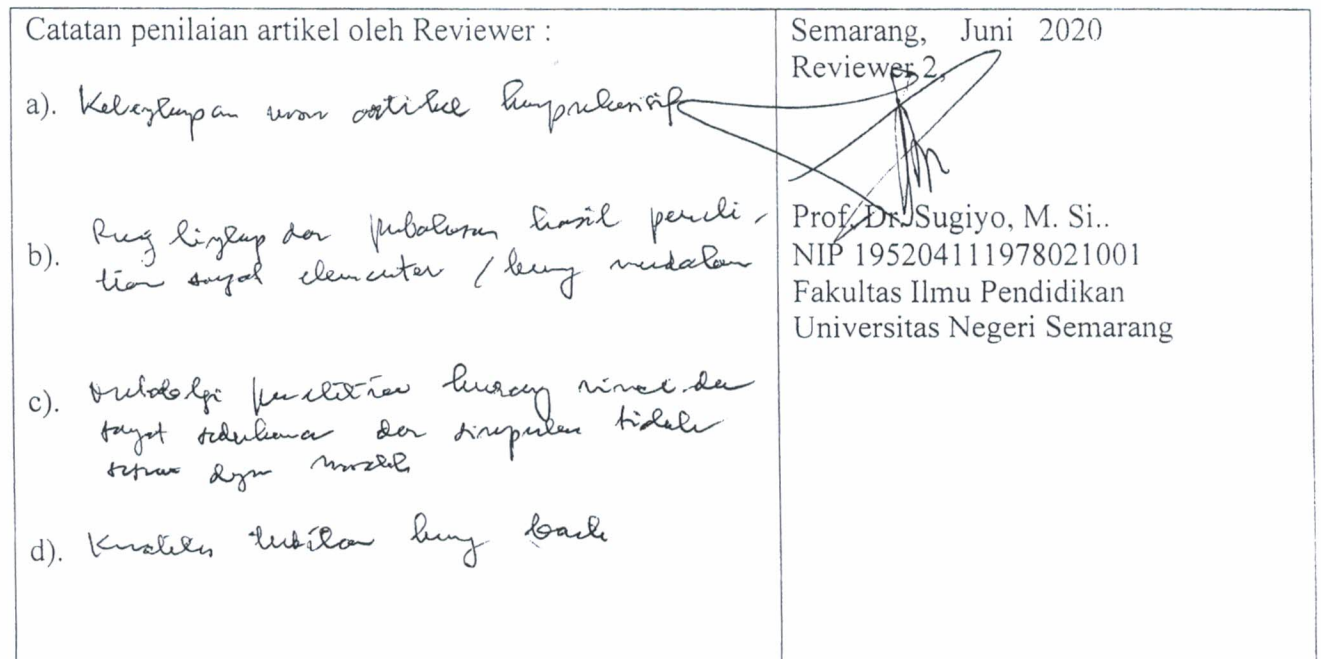 Catatan penilaian artikel oleh Reviewer :
a). Kelengkapan unsur artikel komprehensif
b). Ruang lingkup dan pembahasan hasil peneli-
tian sangat elementer / kurang mendalam
c). Metodologi penelitian kurang rinci dan
sangat sederhana dan simpulan tidak
sesuai dengan masalah
d). Kualitas terbitan kurang baik
Semarang, Juni 2020
Reviewer 2,
Prof. Dr. Sugiyo, M. Si..
NIP 195204111978021001
Fakultas Ilmu Pendidikan
Universitas Negeri Semarang